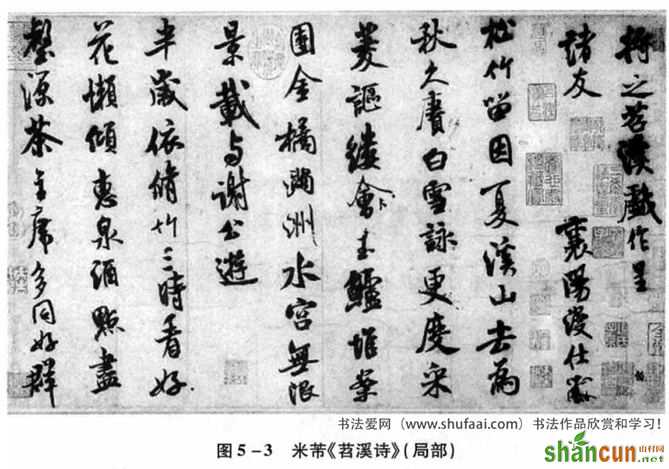 将之苕溪戲作呈
諸友 襄陽漫仕黻
松竹留因夏溪山去為
秋久賡白雪詠更度采
菱謳縷會卜玉鱸堆案
團金橘滿洲水宮無限
景載与謝公遊
半歲依脩竹三時看好
花懶傾惠泉酒點盡
壑源茶主席多同好群
书法爱网（www.shufaai.com）书法作品欣赏和学习！
图5-3 米芾《苕溪诗》（局部）
shancun 山村网
.net